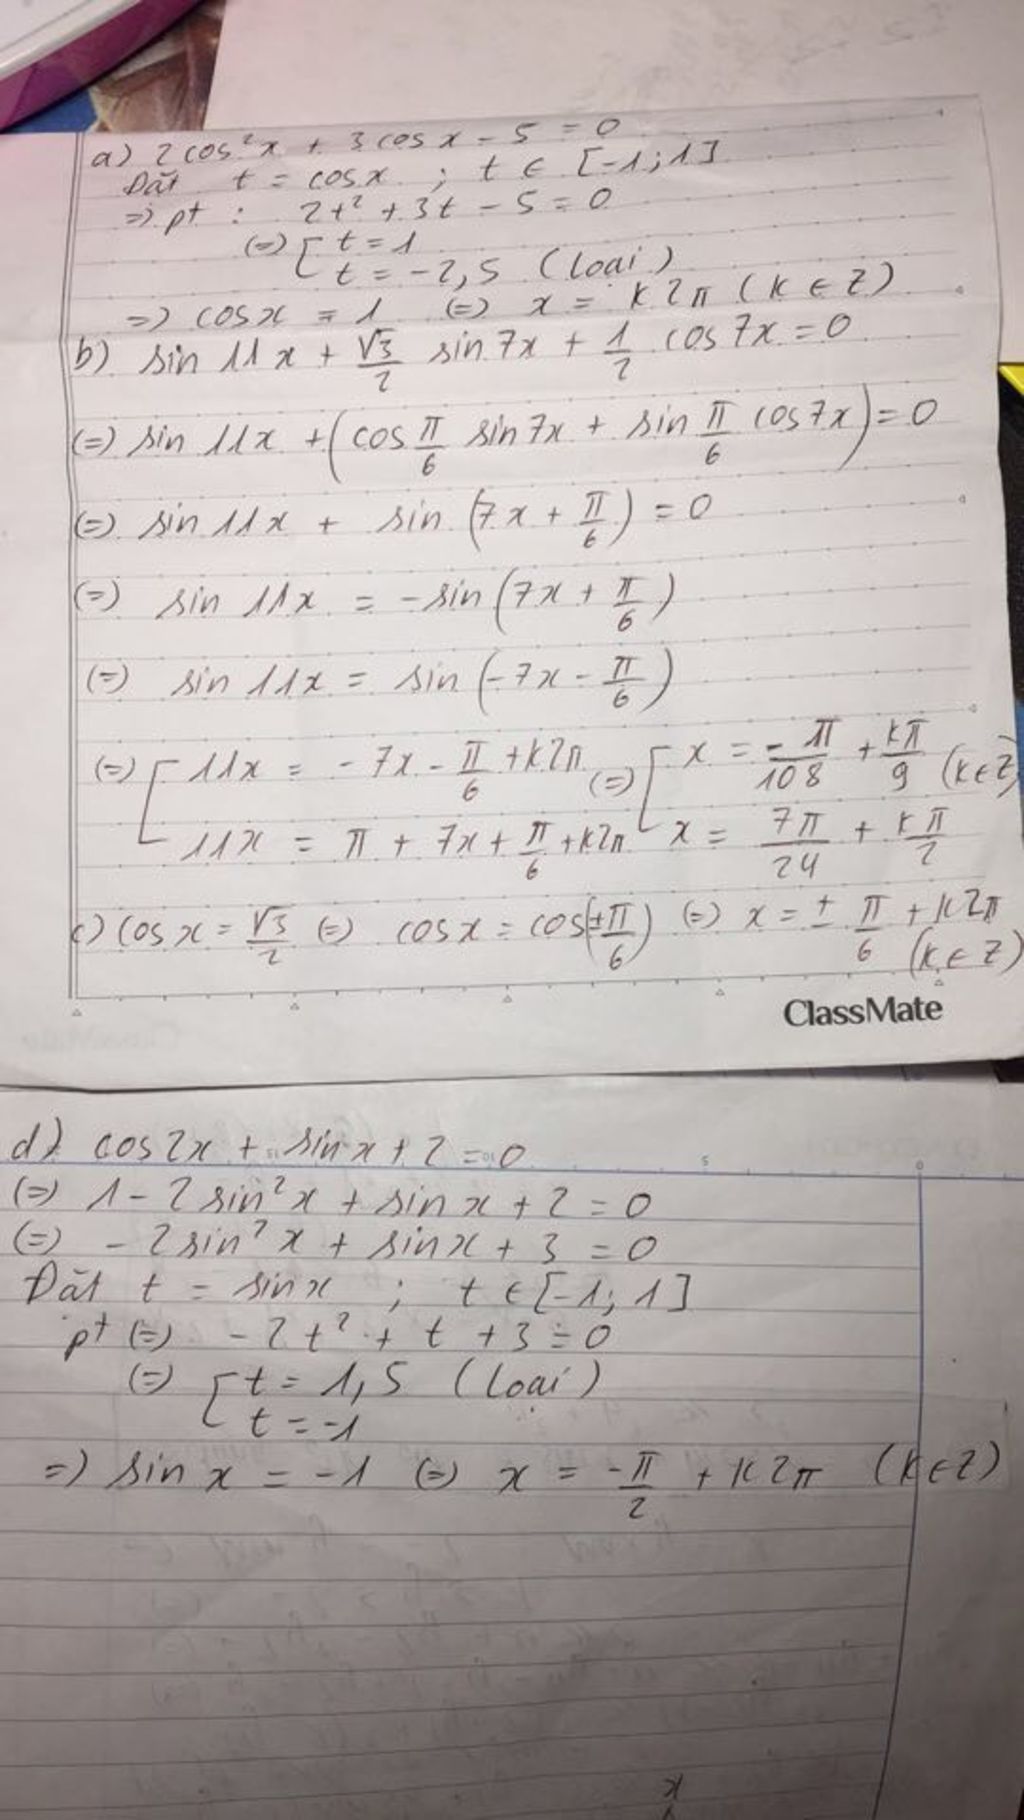 a) 2cos²x + 3cosx - 5 = 0
Đặt t = cosx ; t ∈ [-1;1]
=> pt : 2t² + 3t - 5 = 0
(=) [ t = 1
t = -2,5 (loại)
=> cosx = 1 (=) x = k2π (k ∈ Z)
b) sin 11x + √3/2 sin 7x + 1/2 cos 7x = 0
(=) sin 11x + (cos π/6 sin 7x + sin π/6 cos 7x) = 0
(=) sin 11x + sin (7x + π/6) = 0
(=) sin 11x = -sin (7x + π/6)
(=) sin 11x = sin (-7x - π/6)
(=) [ 11x = -7x - π/6 + k2π (=) [ x = -π/108 + kπ/9 (k ∈ Z)
11x = π + 7x + π/6 + k2π x = 7π/24 + kπ/2
c) cos x = √3/2 (=) cos x = cos(±π/6) (=) x = ± π/6 + k2π
(k ∈ Z)
ClassMate
d) cos2x + sinx + 2 = 0
(=) 1 - 2sin²x + sin x + 2 = 0
(=) -2sin²x + sinx + 3 = 0
Đặt t = sinx ; t ∈ [-1; 1]
pt (=) -2t² + t + 3 = 0
(=) [ t = 1,5 (loại)
t = -1
=) sin x = -1 (=) x = -π/2 + k2π (k ∈ Z)